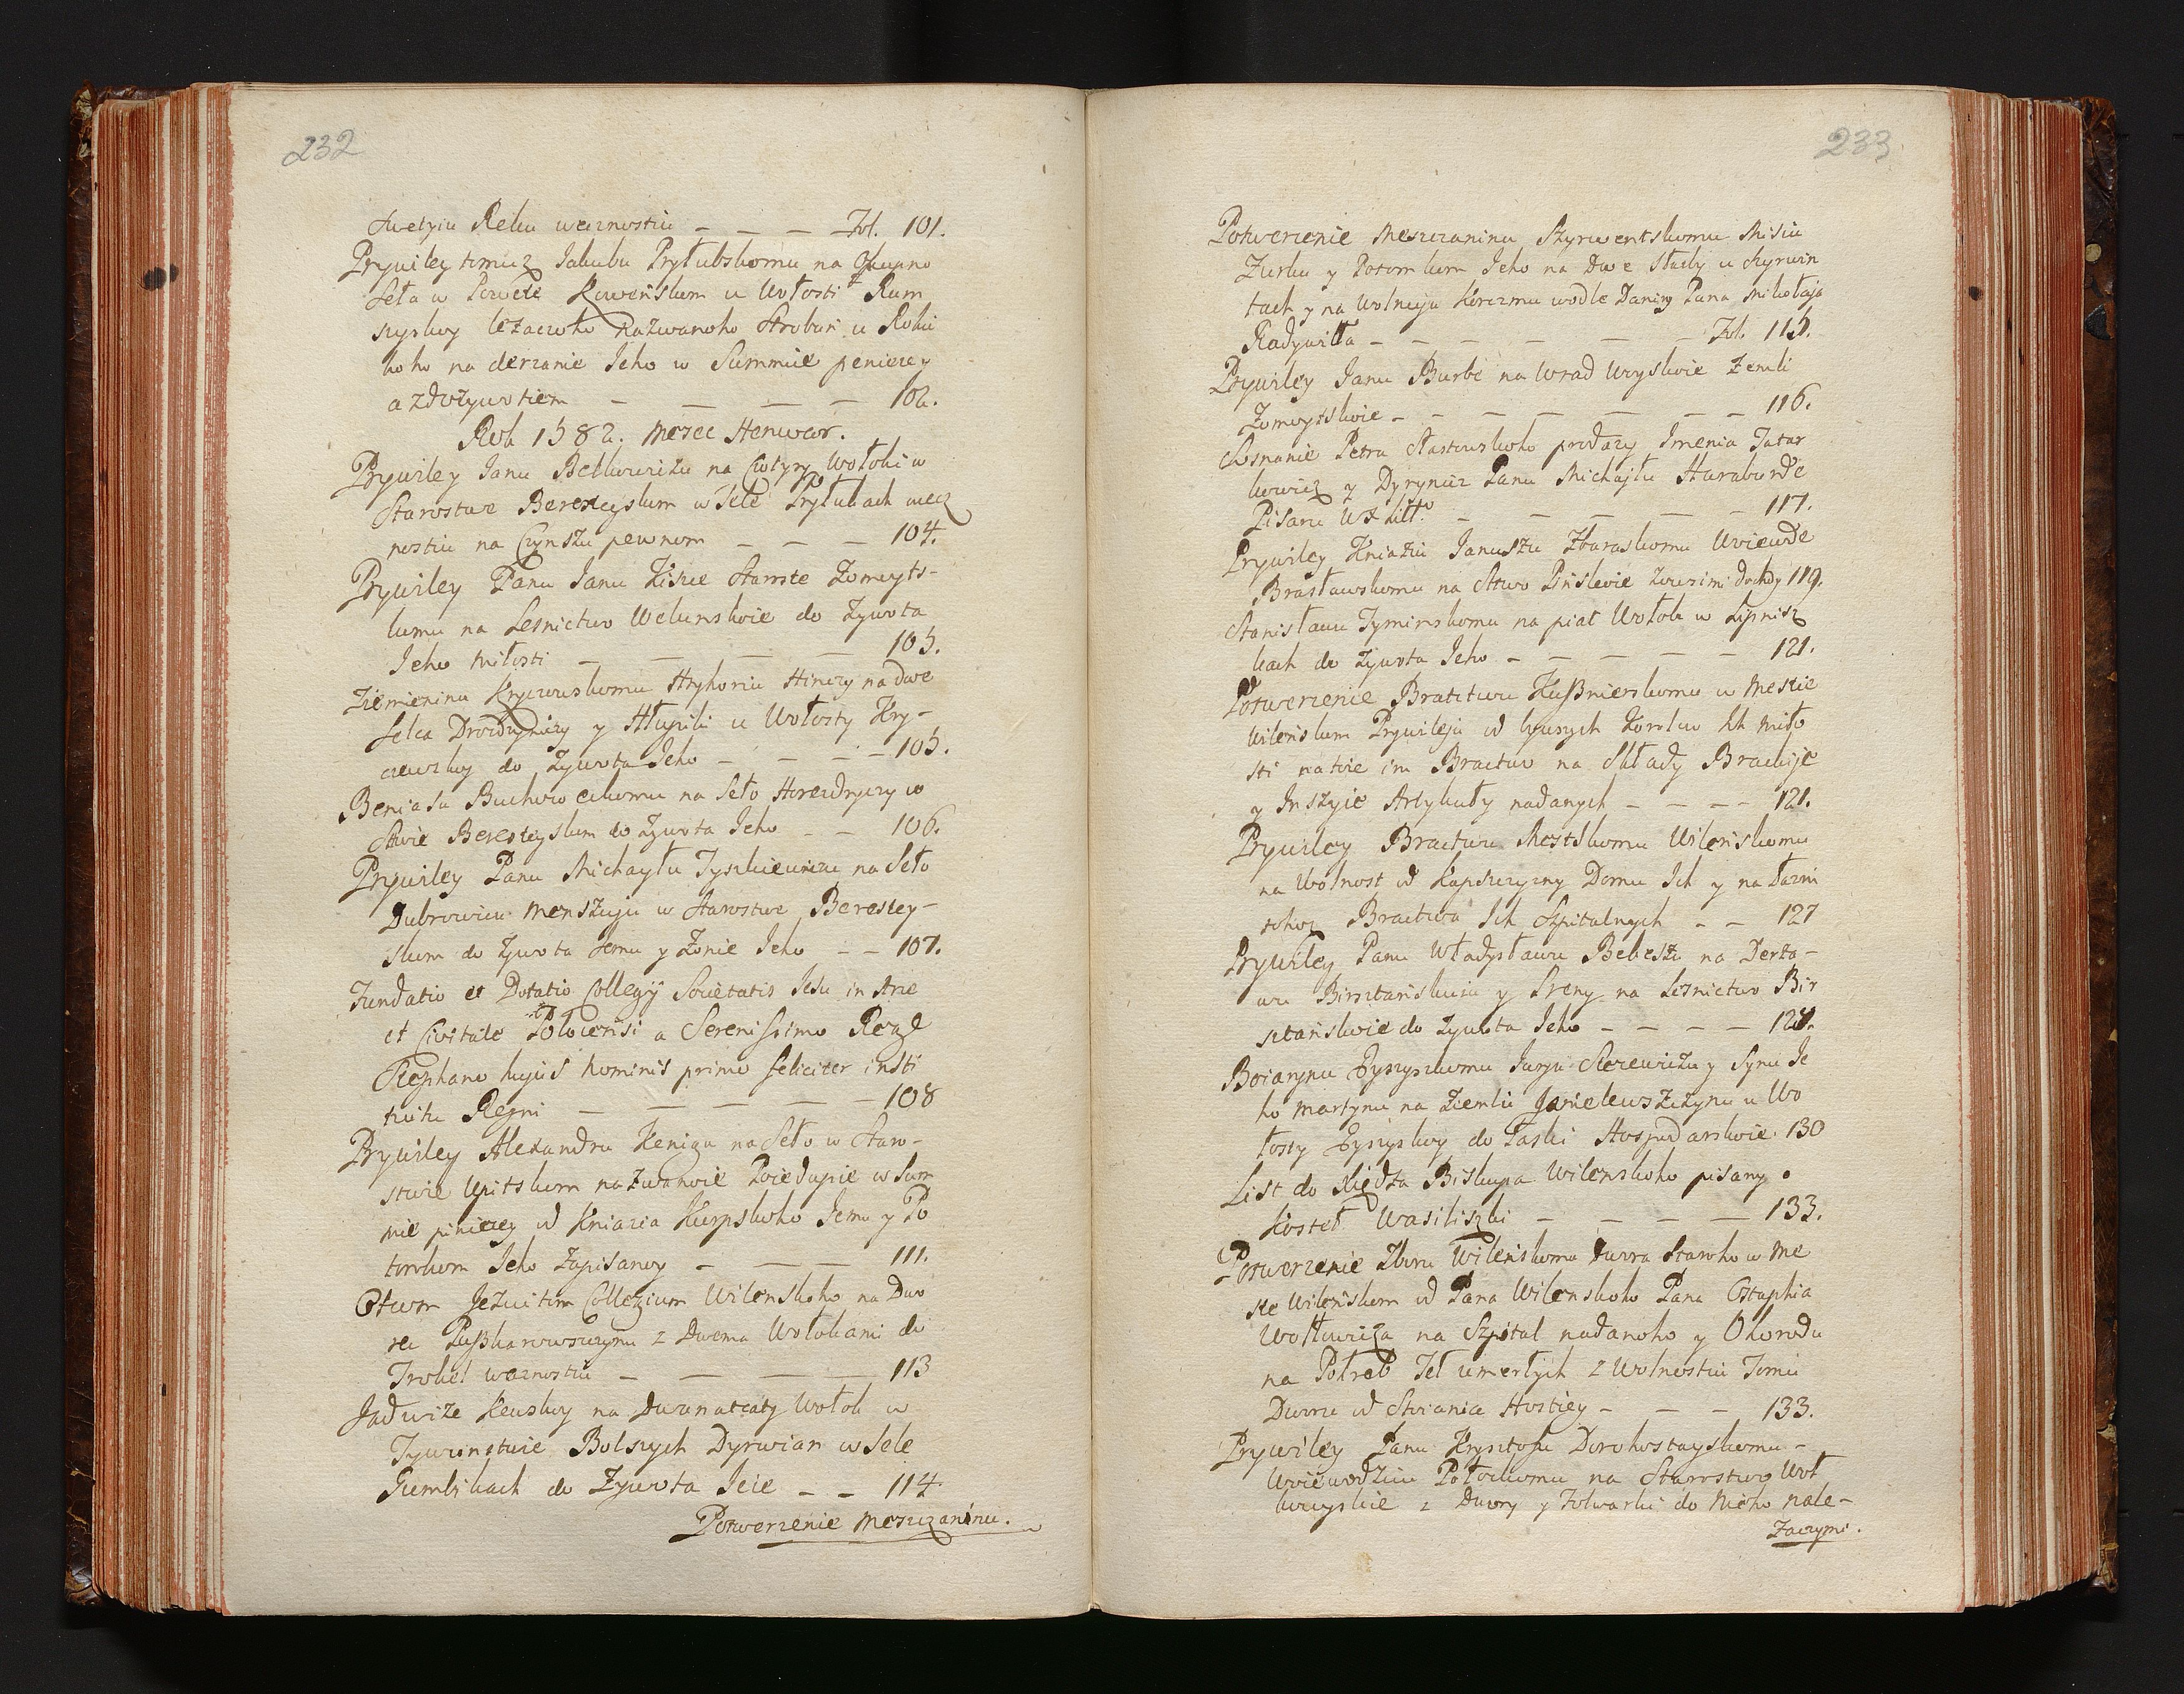 232
Swetyiu Reku wecznostiu — — — Fol. 101.
Prywiley tomuz Jakubu Prytubskomu na Okupno
Seła w Powete Kowenskom u Wołosti Rum
szyskoy leżaczoho nazwanoho Strobun u Roku
koho na derzanie Jeho w Summie peniezey
a z dożywotiem — — — — 102.
Rok 1582. Mesec Henwar.
Prywiley Janu Bełkowiczu na Czotyry Wołoki w
Starostwe Beresteyskom w Sele Pryłukach wecz
nostiu na Czynszu pewnom — — — 104.
Prywiley Panu Janu Kiszce Staroste Żomoyts-
komu na Lesnictwo Welunskoie do Żywota
Jeho Miłosti — — — — 105.
Ziemieninu Kryczewskomu Hryhoriu Hinczy na dwe
Selca Drozdynicy y Hłupiki u Wołosty Kry-
czewskoy do Żywota Jeho — — — — 105.
Beniasu Buchowieckomu na Seło Horodyczy w
Stwie Beresteyskom do Żywota Jeho — — 106.
Prywiley Panu Michayłu Tyszkiewiczu na Seło
Dubrowicu Menszuju w Starostwe Berestey-
skom do Żywota Jemu y Żonie Jeho — — 107.
Fundatio et Dotatio Collegÿ Societatis Jesu in Arce
et Civitate Polocensi a Serenissimo Rege
Stephano hujus Nominis primo feliciter insti
tuta Regni — — — — — 108
Prywiley Alexandru Kenigu na Seło w Staro-
stwie Upitskom nazwanoie Poiedupie w Sum
mie piniezey od Kniazia Kurpskoho Jemu y Po
tomkom Jeho Zapisanoy — — — 111.
Otwor Jezuitom Collegium Wilenskoho na Dwo
rec Puszkarowszczynu z Dwema Wołokami do
Trokel wecznostiu — — — — 113
Jadwize Kenskoy na Dwanatcaty Wołok w
Tywunstwie Bolszych Dyrwian w Sele
Gumbikach do Żywota Jeie — — 114.
Potwerzenie Meszczaninu.
233
Potwerzenie Meszczaninu Szyrwentskomu Misiu
Żurku y Potomkom Jeho na Dwe Służby u Szyrwin
tach y na Wolnuju Korczmu wodle Daniny Pana Mikołaja
Radywiła — — — — — — Fol. 115.
Prywiley Janu Burbe na Wrad Woyskoie Zemli
Żomoytskoie — — — — — — — 116.
Soznanie Petra Stastowskoho prodazy Imenia Tatar
kowicz y Dyrynicz Panu Michajłu Haraburde
Pisaru WX Litt. — — — — — 117.
Prywiley Kniaziu Januszu Zbaraskomu Woiewode
Brasławskomu na Stwo Pinskoie zo wsimi dochody 119.
Stanisławu Tyminskomu na piat Wołok w Lipnisz
kach do Żywota Jeho — — — — — 121.
Potwerzenie Bratstwu Kusznierskomu w Mestie
Wilenskom Prywileju od bywszych Korolow Ich Miło
sti na toie im Bractwo na Składy Brackije
y Inszyie Artykuły nadanych — — — — 121.
Prywiley Bractwu Mestskomu Wilenskomu
na Wolnost od Kapszczyzny Domu Ich y na Łazni
tohoz Bractwa Ich Szpitalnych — — 127
Prywiley Panu Władysławu Bekeszu na Derża-
wu Birsztanskuiu y Preny na Lesnictwo Bir
sztanskoie do Żywota Jeho — — — — 128.
Boiarynu Eyszyszkomu Juryu Sterewiczu y Synu Je
ho Martynu na Ziemlu Janielewszczyznu u Wo
łosty Eyszyskoy do Łaski Hospodarskoie 130
List do Xiędza Biskupa Wilenskoho pisany o
Kosteł Wasiliszki — — — — 133.
Potwerzenie Zboru Wilenskomu Dwora Staroho w Me
ste Wilenskom od Pana Wilenskoho Pana Ostaphia
Wołłowicza na Szpital nadanoho y Ohorodu
na Pohreb Teł umerłych z Wolnostiu Tomu
Dworu od Stoiania Hostiey — — — 133.
Prywiley Panu Krysztofu Dorohostayskomu —
Woiewodziu Połockomu na Starostwo Woł
kowyskie z Dwory y Folwarki do Nieho nale-
żaczymi.